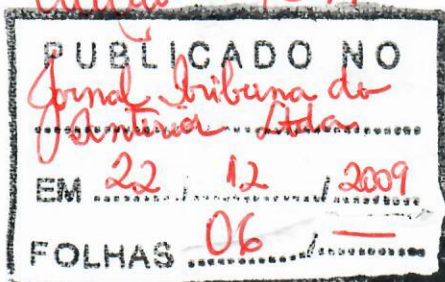 PUBLICADO NO
Jornal Tribuna do
Interior Ltda
EM 22 / 12 / 2009
FOLHAS 06 / —